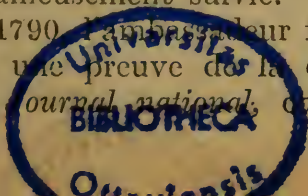 sement suivie.
1790, l'ambassadeur
une preuve de la
ournal national,
Universitas
BIBLIOTHECA
Ottaviensis